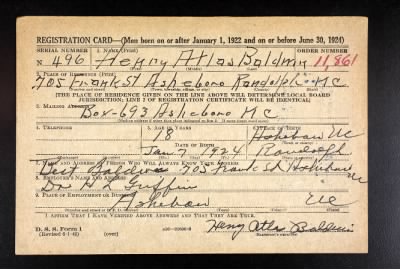 REGISTRATION CARD—(Men born on or after January 1, 1922 and on or before June 30, 1924)
SERIAL NUMBER 1. NAME (Print) ORDER NUMBER
N 496 Henry Atlas Baldwin 11,861
(First) (Middle) (Last)
2. PLACE OF RESIDENCE (Print)
705 Frank St Asheboro Randolph N.C
[THE PLACE OF RESIDENCE GIVEN ON THE LINE ABOVE WILL DETERMINE LOCAL BOARD
JURISDICTION; LINE 2 OF REGISTRATION CERTIFICATE WILL BE IDENTICAL]
3. MAILING ADDRESS
Box-693 Asheboro N.C
4. TELEPHONE 5. AGE IN YEARS 6. PLACE OF BIRTH
18 Asheboro NC
DATE OF BIRTH
Jan 7 1924 Randolph
7. NAME AND ADDRESS OF PERSON WHO WILL ALWAYS KNOW YOUR ADDRESS
Baldwin 705 Frank St Asheboro NC
8. EMPLOYER'S NAME AND ADDRESS
Dr H L Griffin
9. PLACE OF EMPLOYMENT OR BUSINESS
Asheboro NC
I AFFIRM THAT I HAVE VERIFIED ABOVE ANSWERS AND THAT THEY ARE TRUE.
D. S. S. Form 1
Henry Atlas Baldwin